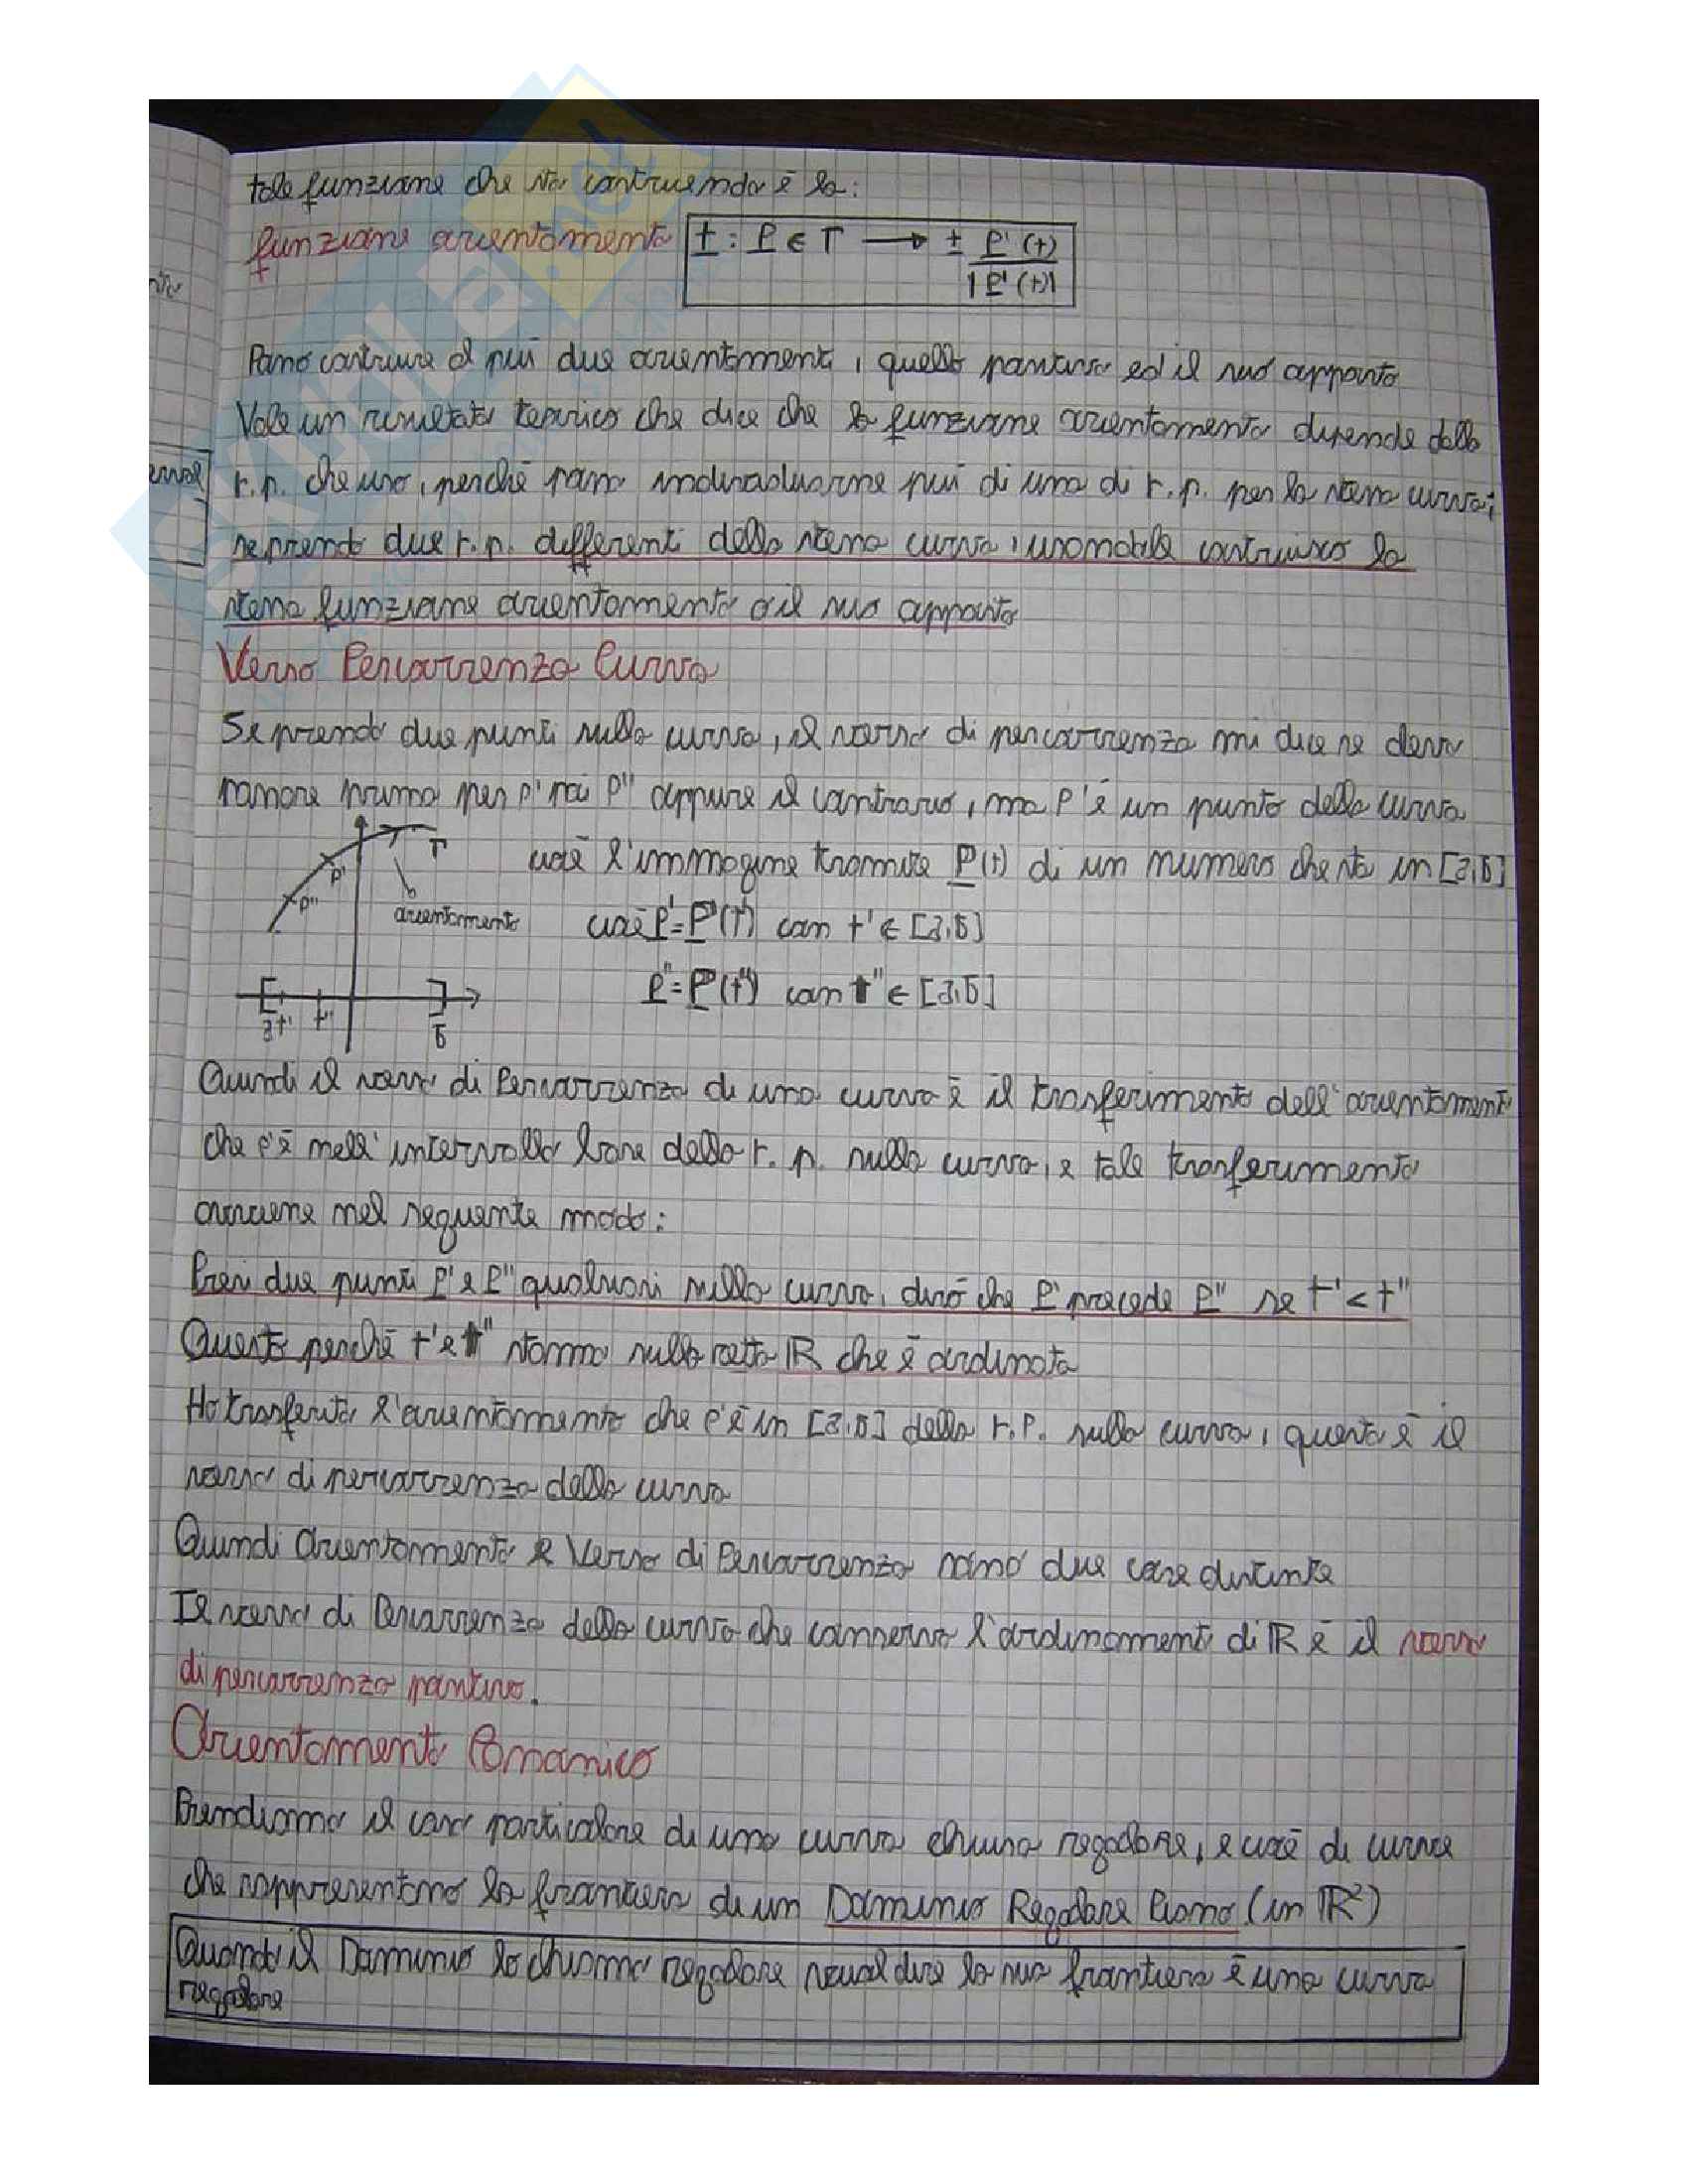 tale funzione che sto costruendo è la:
funzione orientamento t : P ∈ Γ → ± P'(t) / |P'(t)|
Posso costruire al più due orientamenti, quello positivo ed il suo opposto
Vale un risultato teorico che dice che la funzione orientamento dipende dalla
r.p. che uso, perché posso individuarne più di una di r.p. per la stessa curva;
se prendo due r.p. differenti della stessa curva, costruisco la
stessa funzione orientamento o il suo opposto
Verso Percorrenza Curva
Se prendo due punti sulla curva, il verso di percorrenza mi dice se devo
passare prima per P' poi P" oppure il contrario, ma P' è un punto della curva
cioè l'immagine tramite P(t) di un numero che sta in [a,b]
Γ
P'
P"
orientamento
cioè P'=P(t') con t' ∈ [a,b]
P"=P(t") con t" ∈ [a,b]
a t' t" b
Quindi il verso di Percorrenza di una curva è il trasferimento dell'orientamento
che c'è nell'intervallo base della r.p. sulla curva, e tale trasferimento
avviene nel seguente modo:
Presi due punti P' e P" qualsiasi sulla curva, dirò che P' precede P" se t' < t"
Questo perché t' e t" stanno sulla retta ℝ che è ordinata
Ho trasferito l'orientamento che c'è in [a,b] della r.p. sulla curva, questo è il
verso di percorrenza della curva
Quindi Orientamento e Verso di Percorrenza sono due cose distinte
Il verso di Percorrenza della curva che conserva l'ordinamento di ℝ è il verso
di percorrenza positivo.
Orientamento Canonico
Prendiamo il caso particolare di una curva chiusa regolare, e cioè di curve
che rappresentano la frontiera di un Dominio Regolare Piano (in ℝ²)
Quando il Dominio lo chiamo regolare vuol dire la sua frontiera è una curva
regolare